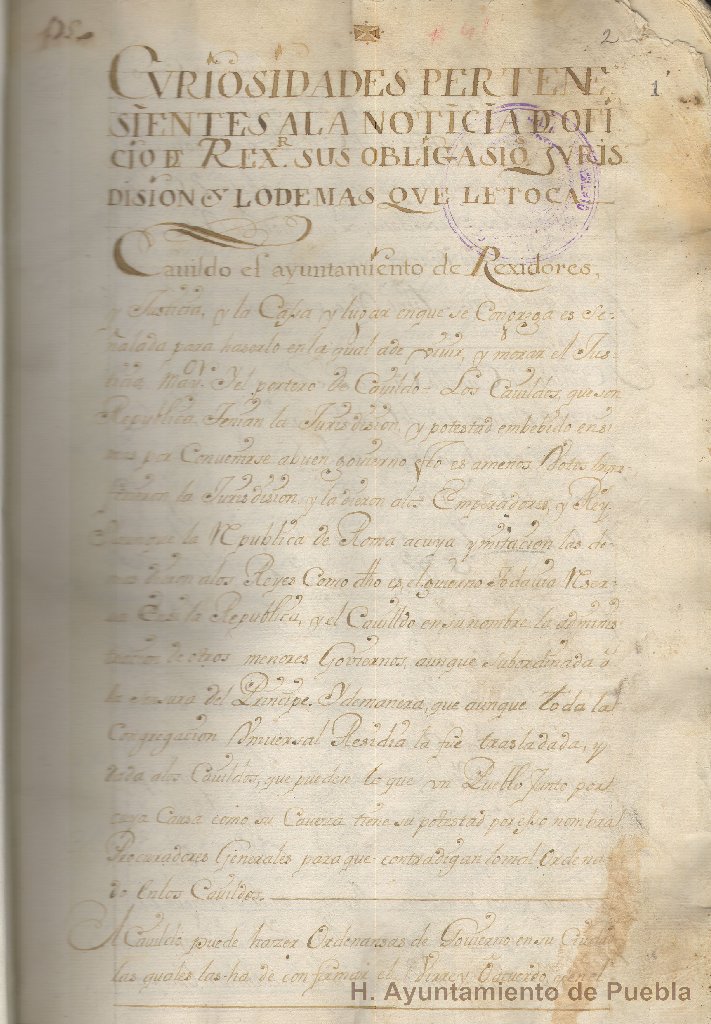 2
1
CVRIOSIDADES PERTENE
SIENTES ALA NOTICIA DE OFI
CIO DE REX.R SUS OBLIGASIOs. JVRIS
DISION Y LODEMAS QVE LE TOCA
Cauildo es ayuntamiento de Rexidores,
y Justicia, y la Cassa y lugar enque se Congrega es Se
ñalada para hazerlo en la qual ade viuir, y morar el Jus
ticia Mayor. Y el portero de Cauildo. Los Cauildos, que son
Republica Tenian la Jurisdision, y potestad embebido en si
mas por Conuenirse abuen gouierno esto es amenos Botos
la Jurisdision, y la dieron alos Emperadores, y Reyes
aunque la Republica de Roma acuya ymitacion las de
mas dieron alos Reyes Como dho es, el gouierno Todauia Reser
uo Ensi la Republica, y el Cauildo en su nombre la adminis
tracion de otros menores Gouiernos, aunque Subordinada á
la Sensura del Principe. Y demanera, que aunque toda la
Congregacion Vniversal Residia la fue trasladada, y
dada alos Cauildos, que pueden lo que vn Pueblo Junto por
cuya Causa como su Caueza tiene su potestad por esso nombra
Procuradores Generales para que contradigan lo mal Ordena
do Enlos Cauildos.
Al Cauildo puede hazer Ordenansas de Gouierno en su Ciudad
las quales las ha de confirmar el Virrey
H. Ayuntamiento de Puebla